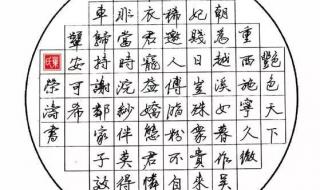 艷色天下
重西施寧久微
朝為越溪女暮作吴
妃賤日豈殊衆貴來
稀邀人傅脂粉不自
衣君寵益嬌態君憐
非當時浣紗伴莫得
車歸持謝鄰家子效
顰安可希
榮濤書